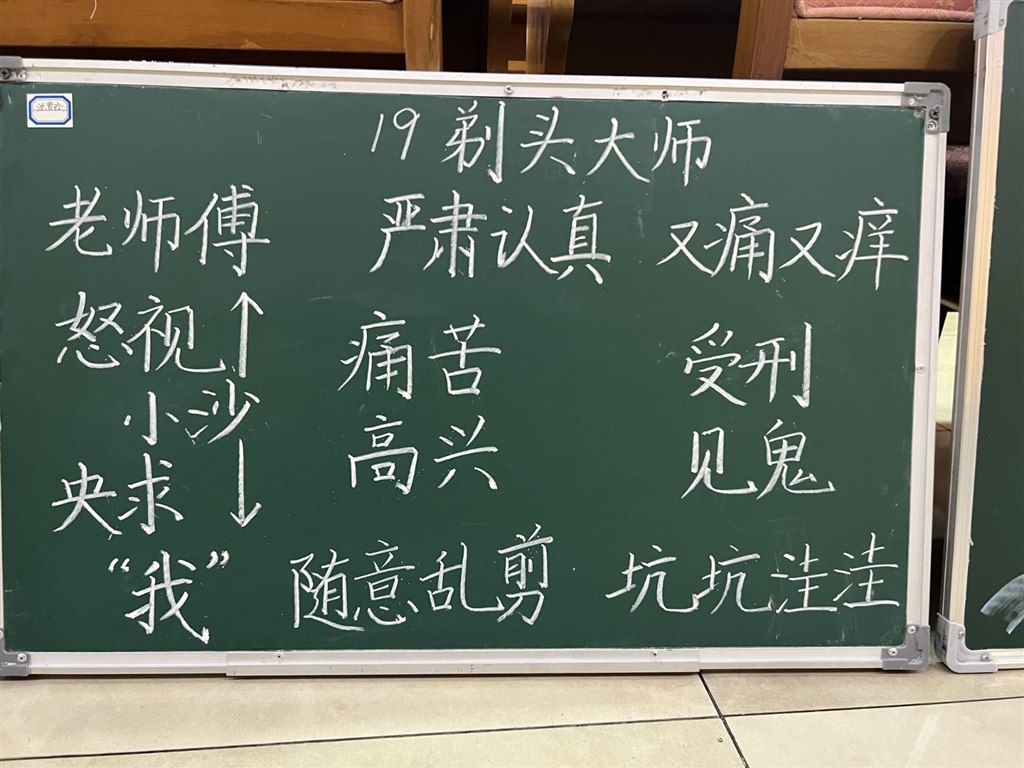 19 剃头大师
老师傅 严肃认真 又痛又痒
怒视 ↑ 痛苦 受刑
小沙
高兴 见鬼
央求 ↓
“我” 随意乱剪 坑坑洼洼